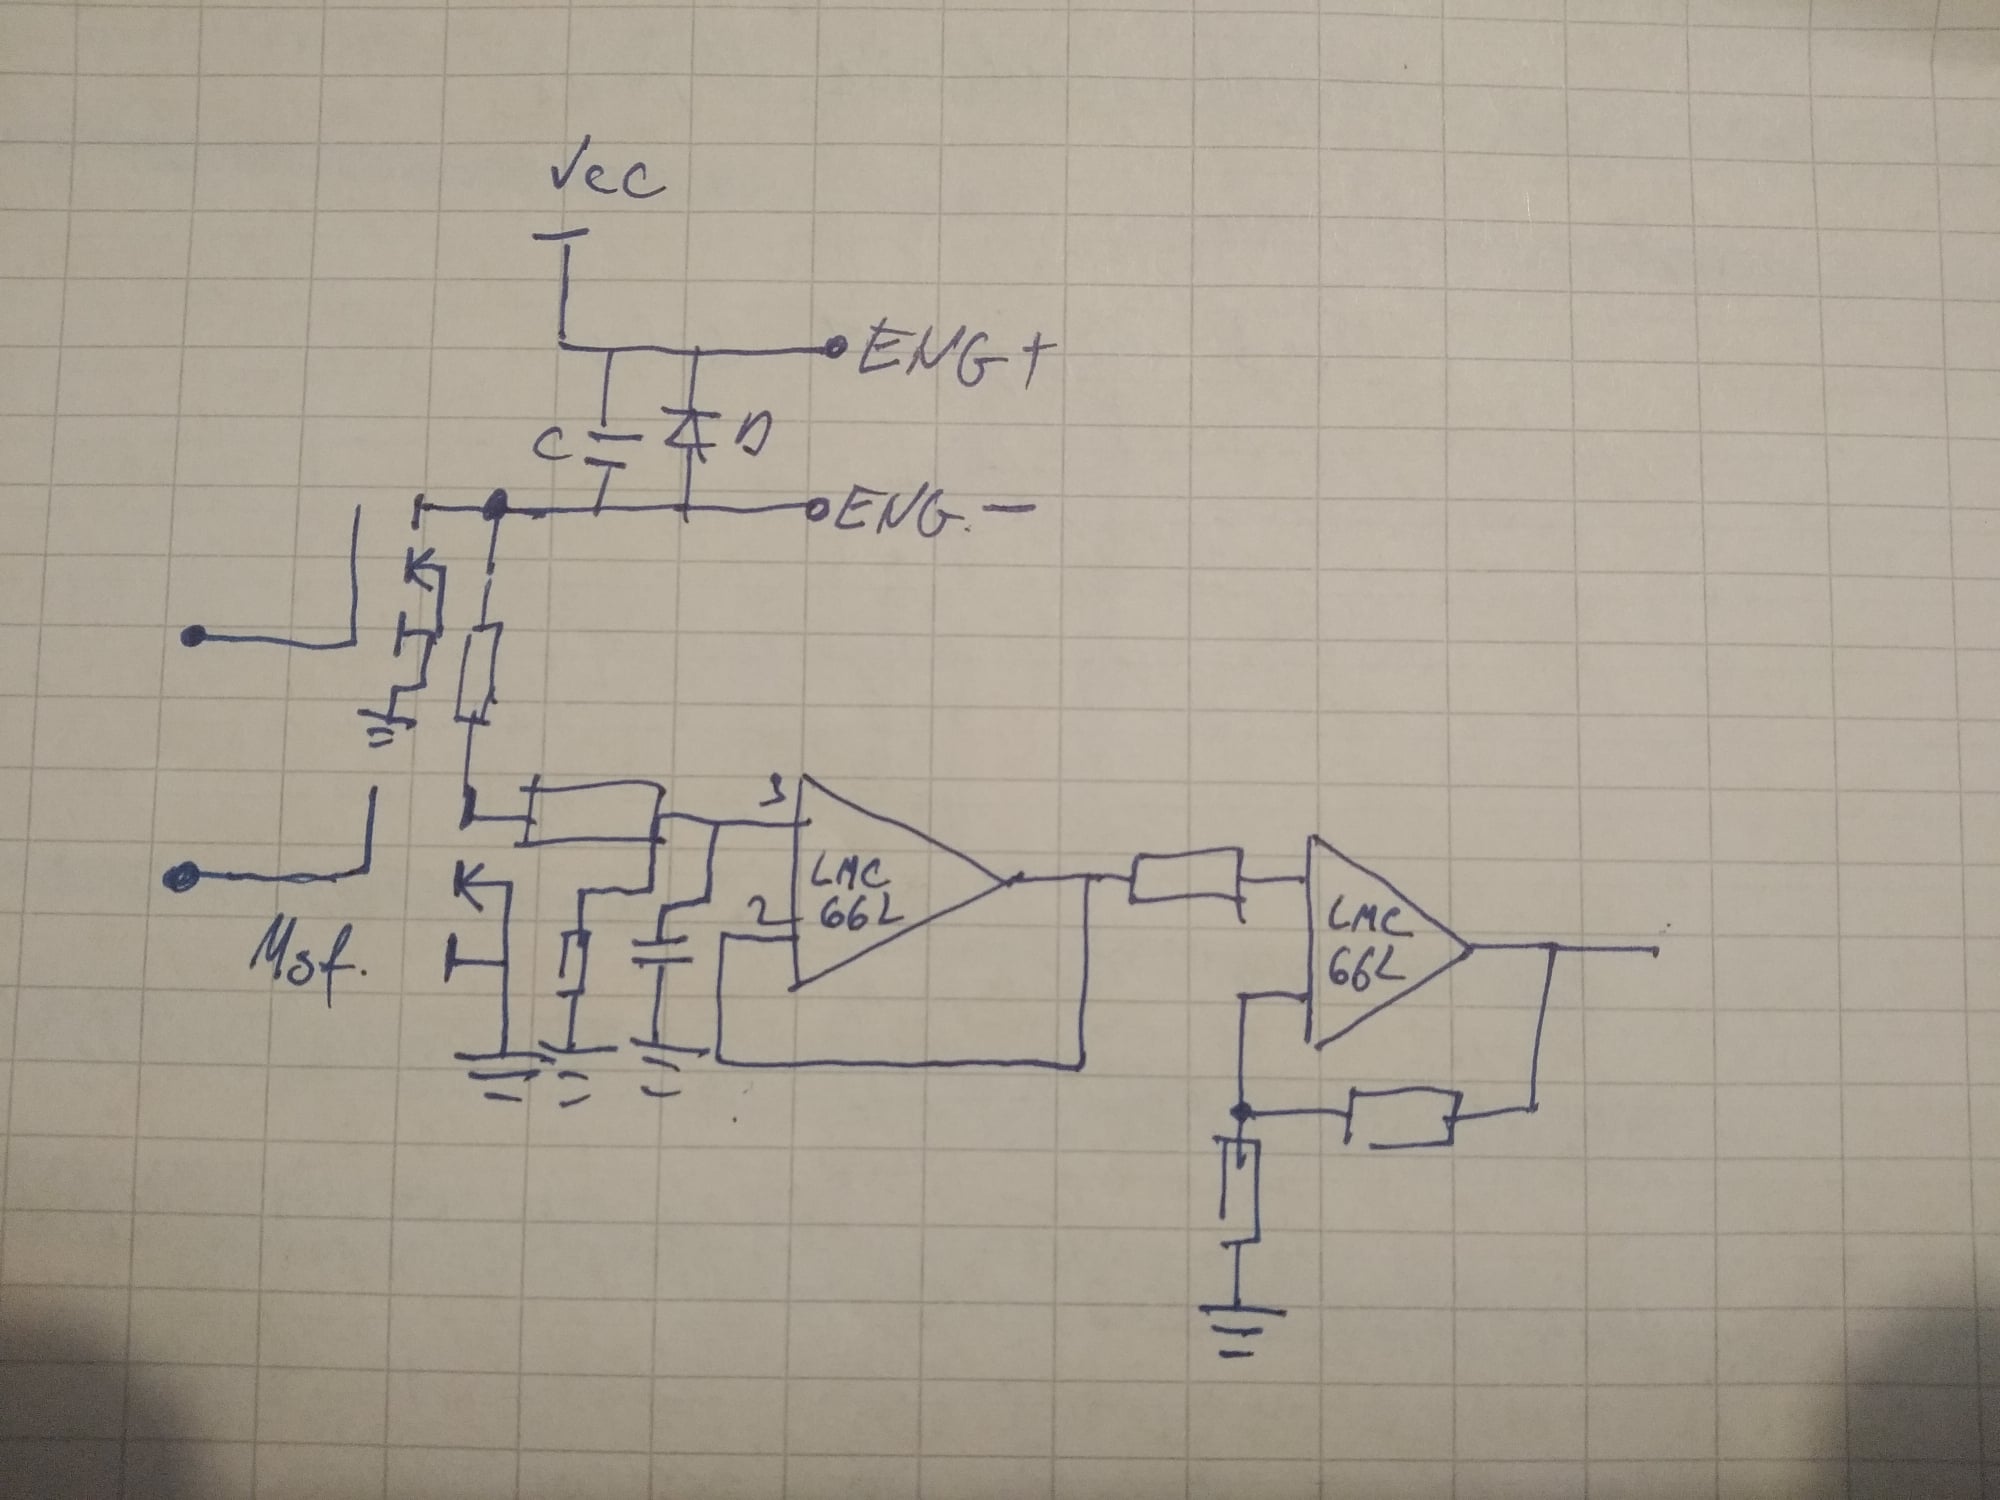 Vcc
ENG+
C
D
ENG.-
3
LMC
662
2
LMC
662